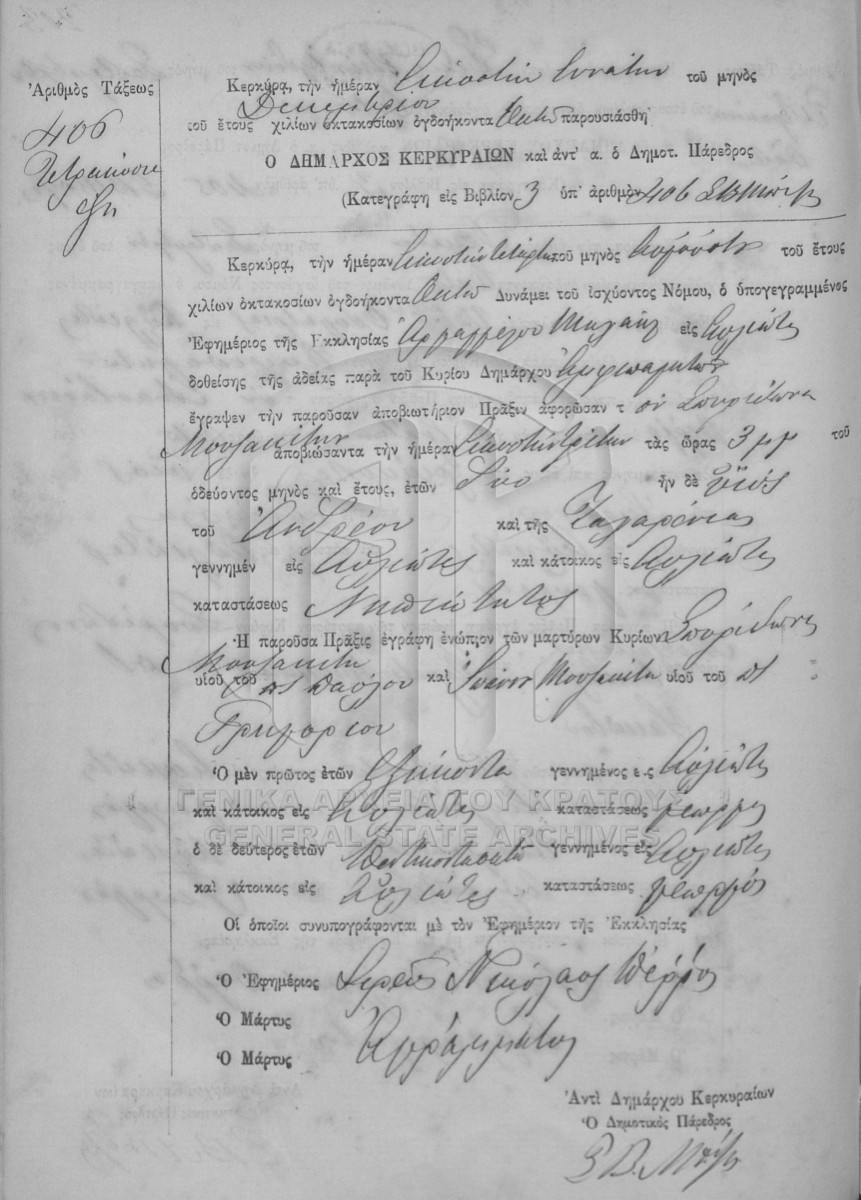 Ἀριθμὸς Τάξεως
406
Τετρακόσια
ἕξη
Κερκύρα, τὴν ἡμέραν Εἰκοστὴν ἐννάτην τοῦ μηνὸς
Δεκεμβρίου
τοῦ ἔτους χιλίων ὀκτακοσίων ὀγδοήκοντα ὀκτὼ παρουσιάσθη
Ο ΔΗΜΑΡΧΟΣ ΚΕΡΚΥΡΑΙΩΝ καὶ ἀντ' α. ὁ Δημοτ. Πάρεδρος
(Κατεγράφη εἰς Βιβλίον 3 ὑπ' ἀριθμὸν 406
Κερκύρα, τὴν ἡμέραν Εἰκοστὴν τετάρτην τοῦ μηνὸς Αὐγούστου τοῦ ἔτους
χιλίων ὀκτακοσίων ὀγδοήκοντα ὀκτὼ Δυνάμει τοῦ ἰσχύοντος Νόμου, ὁ ὑπογεγραμμένος
Ἐφημέριος τῆς Εκκλησίας Ἀρχαγγέλου Μιχαὴλ εἰς Αὐλιώτες
δοθείσης τῆς ἀδείας παρὰ τοῦ Κυρίου Δημάρχου
ἔγραψεν τὴν παροῦσαν ἀποβιωτήριον Πρᾶξιν ἀφορῶσαν τ ὸν Σπυρίδωνα
Μουζακίτην ἀποβιώσαντα τὴν ἡμέραν Εἰκοστὴν τρίτην τὰς ὥρας 3 μμ τοῦ
ὁδεύοντος μηνὸς καὶ ἔτους, ἐτῶν δύο ἦν δὲ υἱὸς
τοῦ Ἀνδρέου καὶ τῆς
γεννημέν εἰς Αὐλιώτες καὶ κάτοικος εἰς Αὐλιώτες
καταστάσεως Νηπιότητος
Ἡ παροῦσα Πρᾶξις ἐγράφη ἐνώπιον τῶν μαρτύρων Κυρίων Σπυρίδωνος
Μουζακίτη
υἱοῦ τοῦ πς Παύλου καὶ Ἰωάννου Μουζακίτη υἱοῦ τοῦ πς
Γρηγορίου
Ὁ μὲν πρῶτος ἐτῶν ἑξήκοντα γεννημένος ε.ς Αὐλιώτες
καὶ κάτοικος εἰς Αὐλιώτες καταστάσεως γεωργὸς
ὁ δὲ δεύτερος ἐτῶν πεντηκονταοκτὼ γεννημένος εἰς Αὐλιώτες
καὶ κάτοικος εἰς Αὐλιώτες καταστάσεως γεωργὸς
Οἱ ὁποῖοι συνυπογράφονται μὲ τὸν Ἐφημέριον τῆς Ἐκκλησίας
Ὁ Ἐφημέριος Ἱερεὺς Νικόλαος Βέργος
Ὁ Μάρτυς Ἀγράμματος
Ὁ Μάρτυς
Ἀντὶ Δημάρχου Κερκυραίων
Ὁ Δημοτικὸς Πάρεδρος
ΓΕΝΙΚΑ ΑΡΧΕΙΑ ΤΟΥ ΚΡΑΤΟΥΣ
GENERAL STATE ARCHIVES